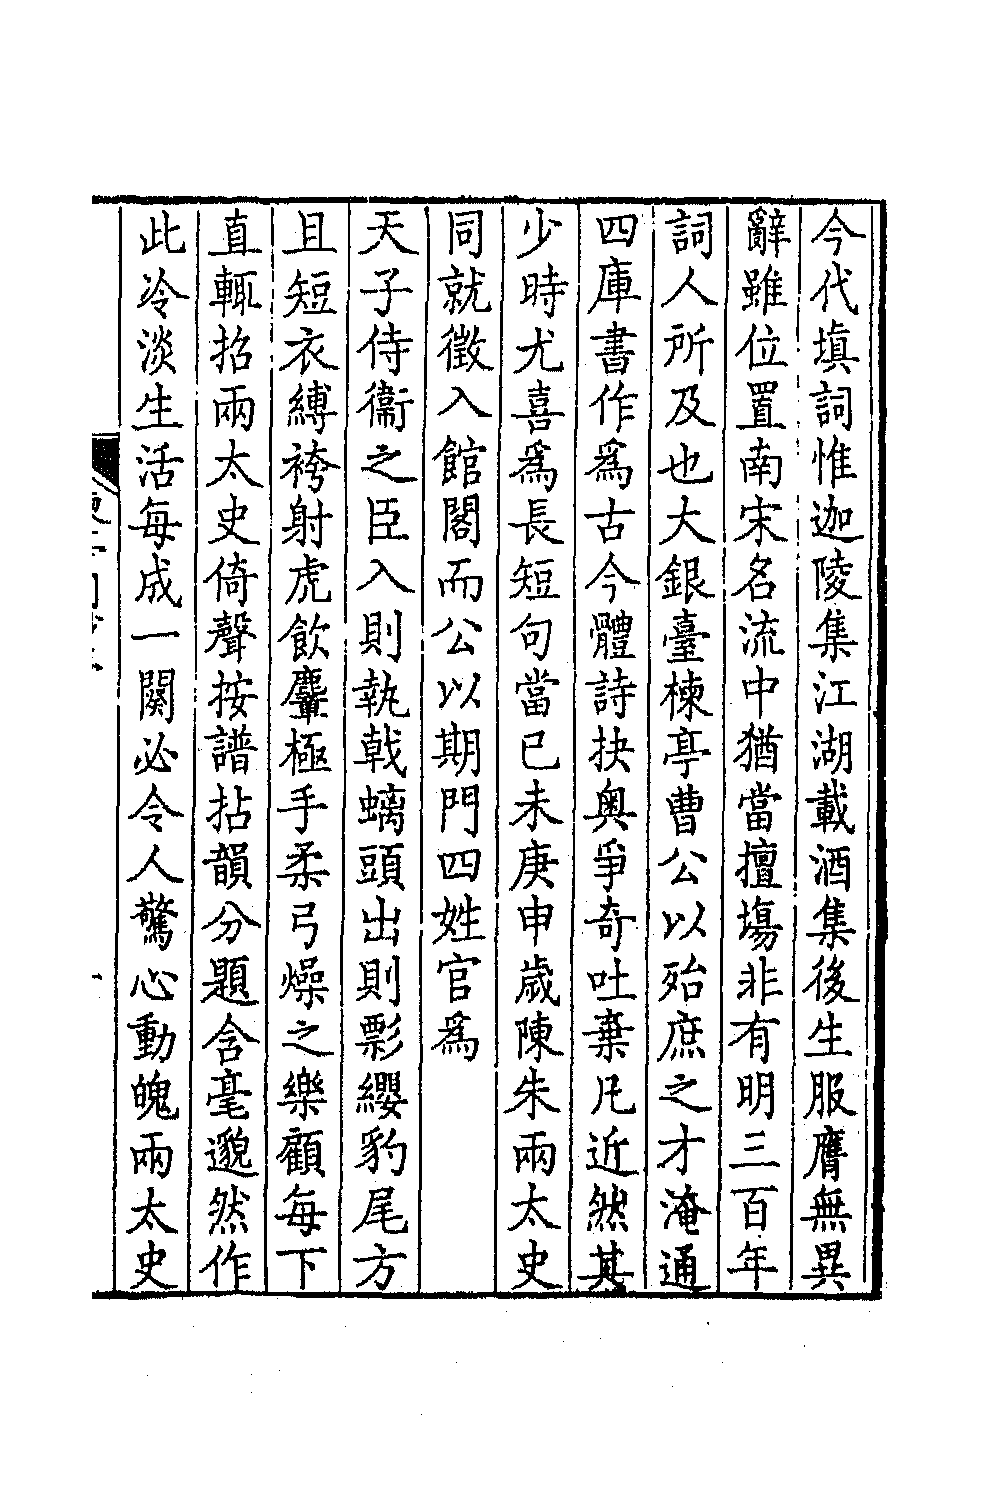 今代填詞惟迦陵集江湖載酒集後生服膺無異
辭雖位置南宋名流中猶當擅塲非有明三百年
詞人所及也大銀臺楝亭曹公以殆庶之才淹通
四庫書作爲古今體詩抉奥爭奇吐棄凡近然其
少時尤喜爲長短句當已未庚申歲陳朱兩太史
同就徵入館閣而公以期門四姓官爲
天子侍衞之臣入則執戟螭頭出則影纓豹尾方
且短衣縛袴射虎飲麞極手柔弓燥之樂顧每下
直輒招兩太史倚聲按譜拈韻分題含毫邈然作
此冷淡生活每成一闋必令人驚心動魄兩太史